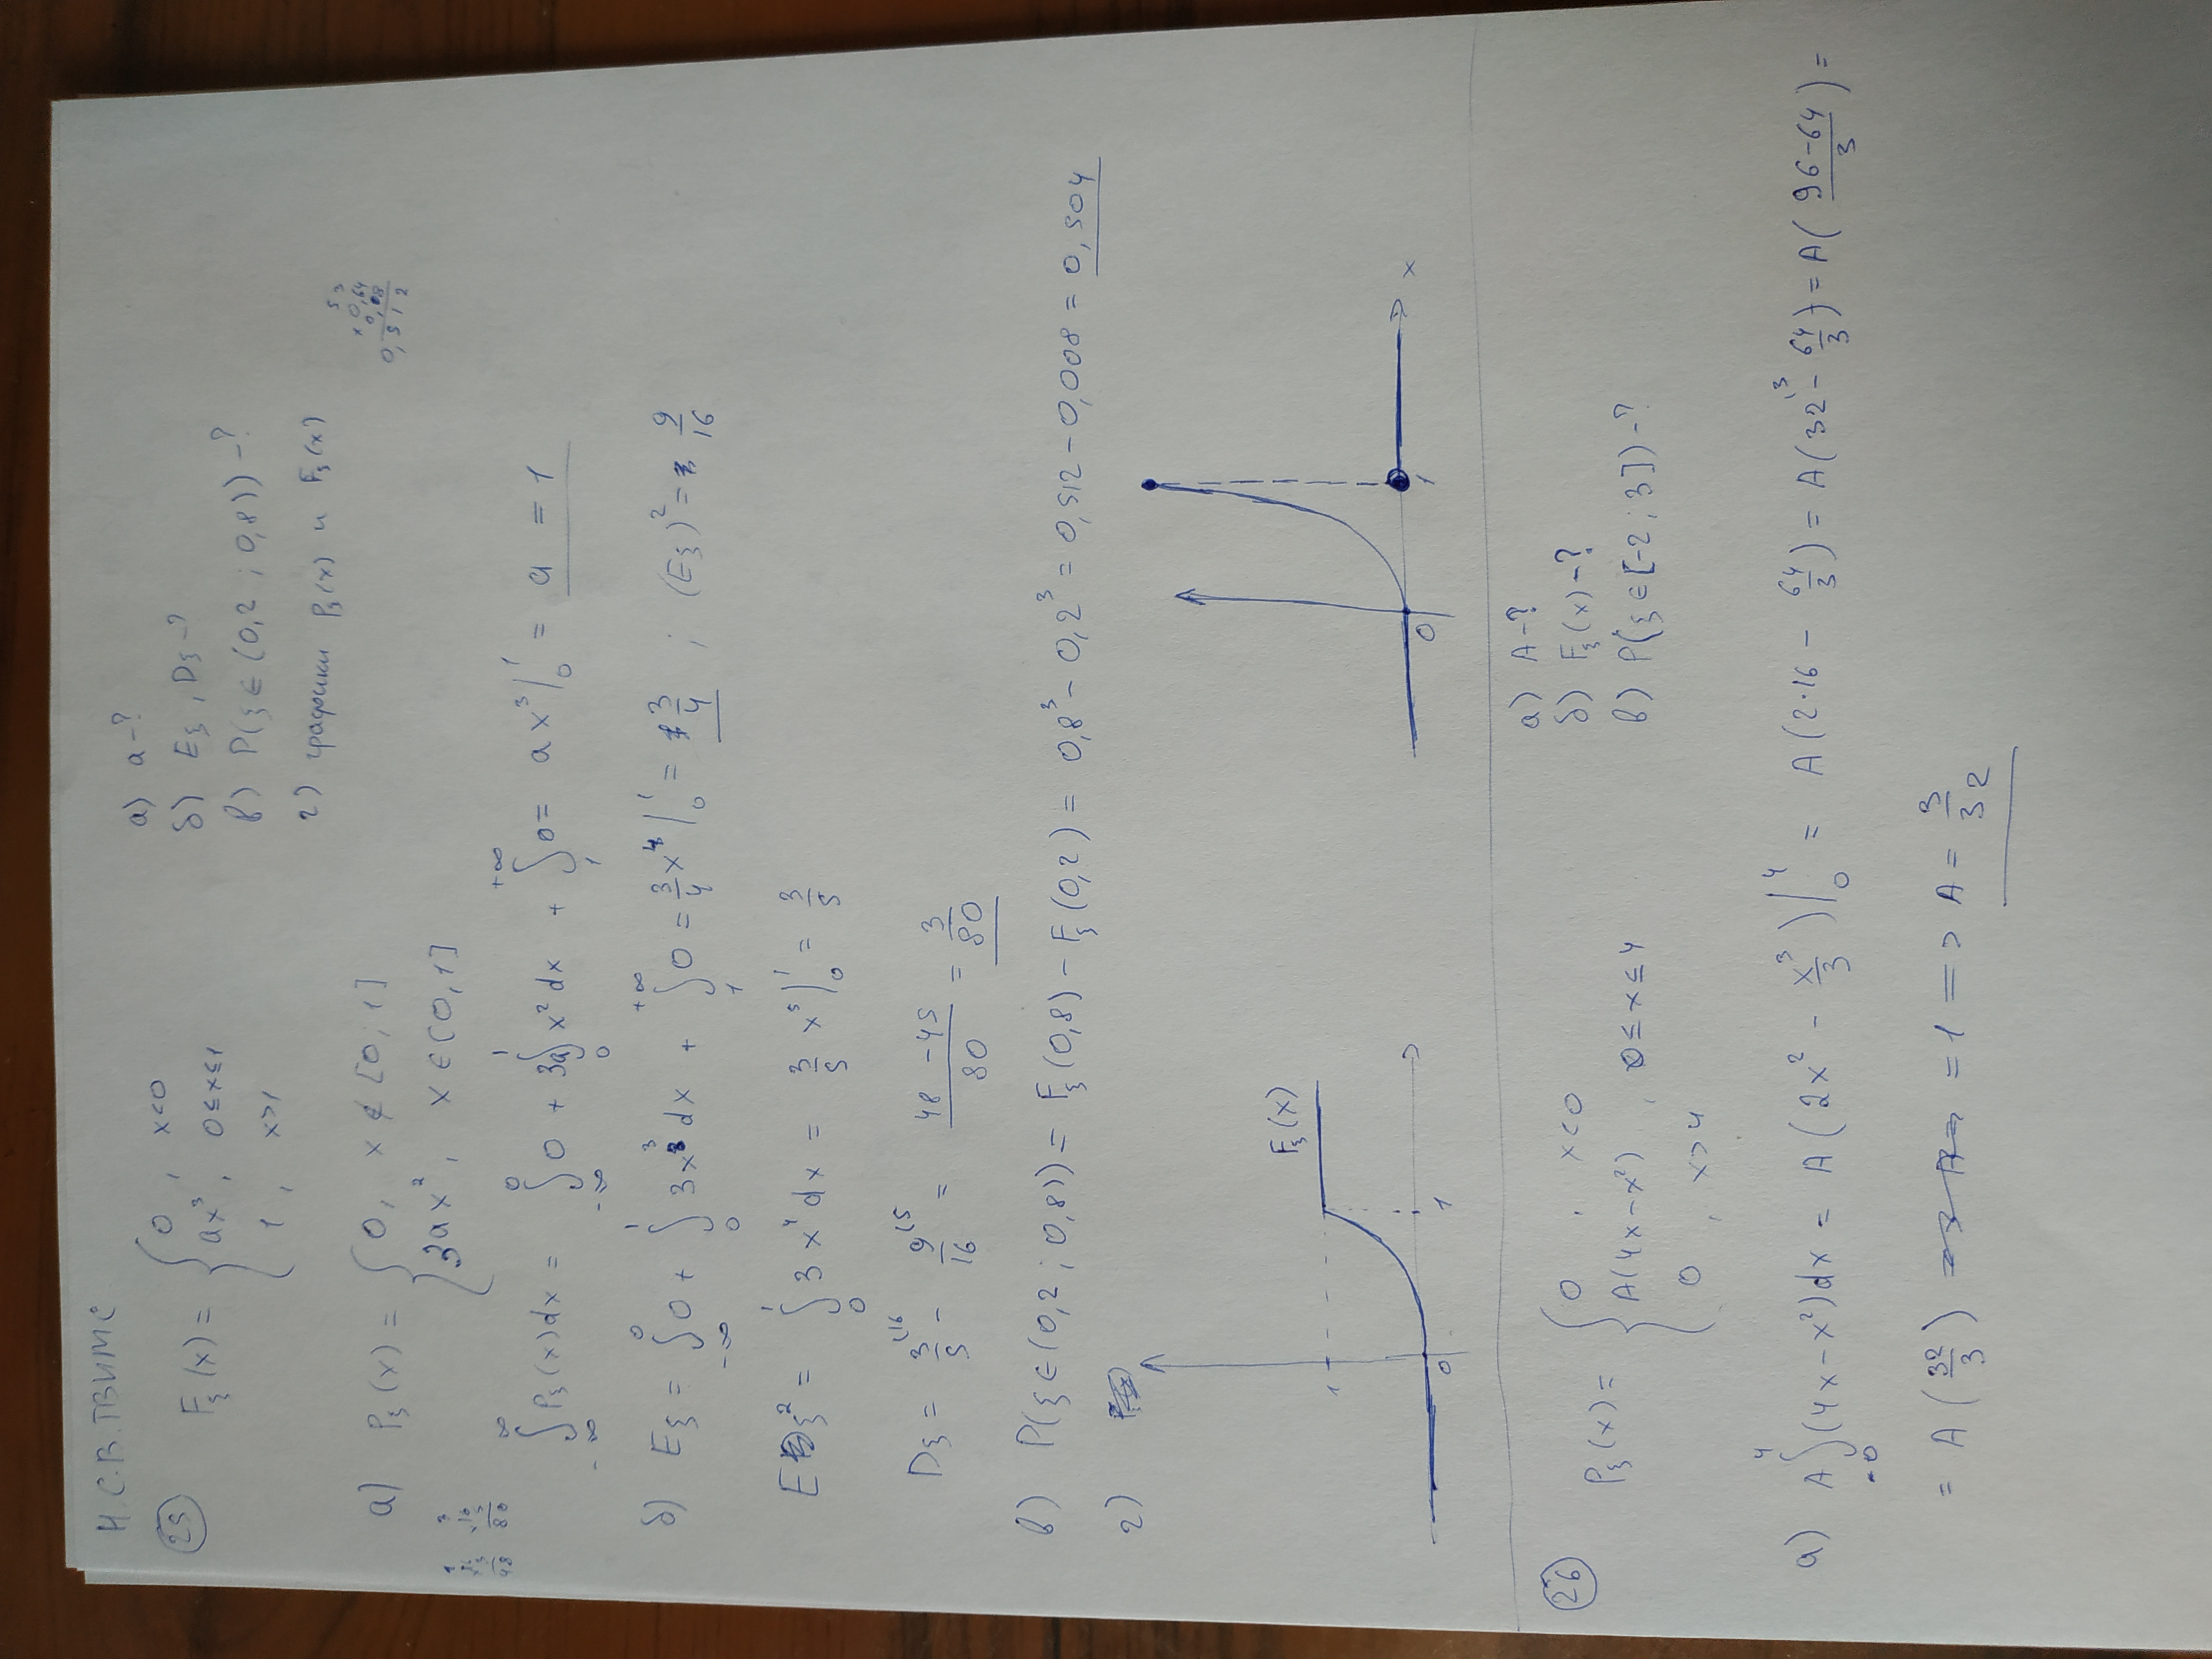 Н.С.В. ТВИМС
25
F_ξ(x) = { 0, x<0
ax³, 0≤x≤1
1, x>1
а) a-?
б) Eξ, Dξ-?
в) P(ξ∈(0,2 ; 0,8))-?
г) графики P_ξ(x) и F_ξ(x)
5 3
× 0,64
0,08
0,512
а) P_ξ(x) = { 0, x ∉ [0;1]
3ax², x∈[0,1]
∫_{-∞}^{∞} P_ξ(x)dx = ∫_{-∞}^{0} 0 + 3a∫_{0}^{1} x² dx + ∫_{1}^{+∞} 0 = ax³|_0^1 = a = 1
б) Eξ = ∫_{-∞}^{0} 0 + ∫_{0}^{1} 3x³ dx + ∫_{1}^{+∞} 0 = 3/4 x⁴|_0^1 = 3/4 ; (Eξ)² = 9/16
Eξ² = ∫_{0}^{1} 3x⁴ dx = 3/5 x⁵|_0^1 = 3/5
Dξ = 3/5 (16 - 9/16 (5 = (48 - 45)/80 = 3/80
в) P(ξ∈(0,2 ; 0,8)) = F_ξ(0,8) - F_ξ(0,2) = 0,8³ - 0,2³ = 0,512 - 0,008 = 0,504
г)
F_ξ(x)
1
0 1
0 1 x
26
P_ξ(x) = { 0, x<0
A(4x-x²), 0≤x≤4
0, x>4
а) A-?
б) F_ξ(x)-?
в) P(ξ∈[-2 ; 3])-?
а) A∫_{0}^{4} (4x-x²)dx = A(2x² - x³/3)|_0^4 = A(2·16 - 64/3) = A(32 (3 - 64/3) = A((96-64)/3) =
= A(32/3) = 1 => A = 3/32